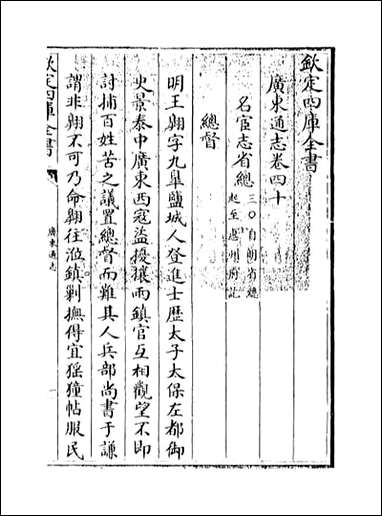 欽定四庫全書
廣東通志卷四十
名宦志省總
三〇自明省總
起至惠州府訖
總督
明王翺字九皐鹽城人登進士歷太子太保左都御
史景泰中廣東西寇盜擾攘而鎮官互相觀望不即
討捕百姓苦之議置總督而難其人兵部尚書于謙
謂非翺不可乃命翺往涖鎮剿撫得宜猺獞帖服民
欽定四庫全書
廣東通志